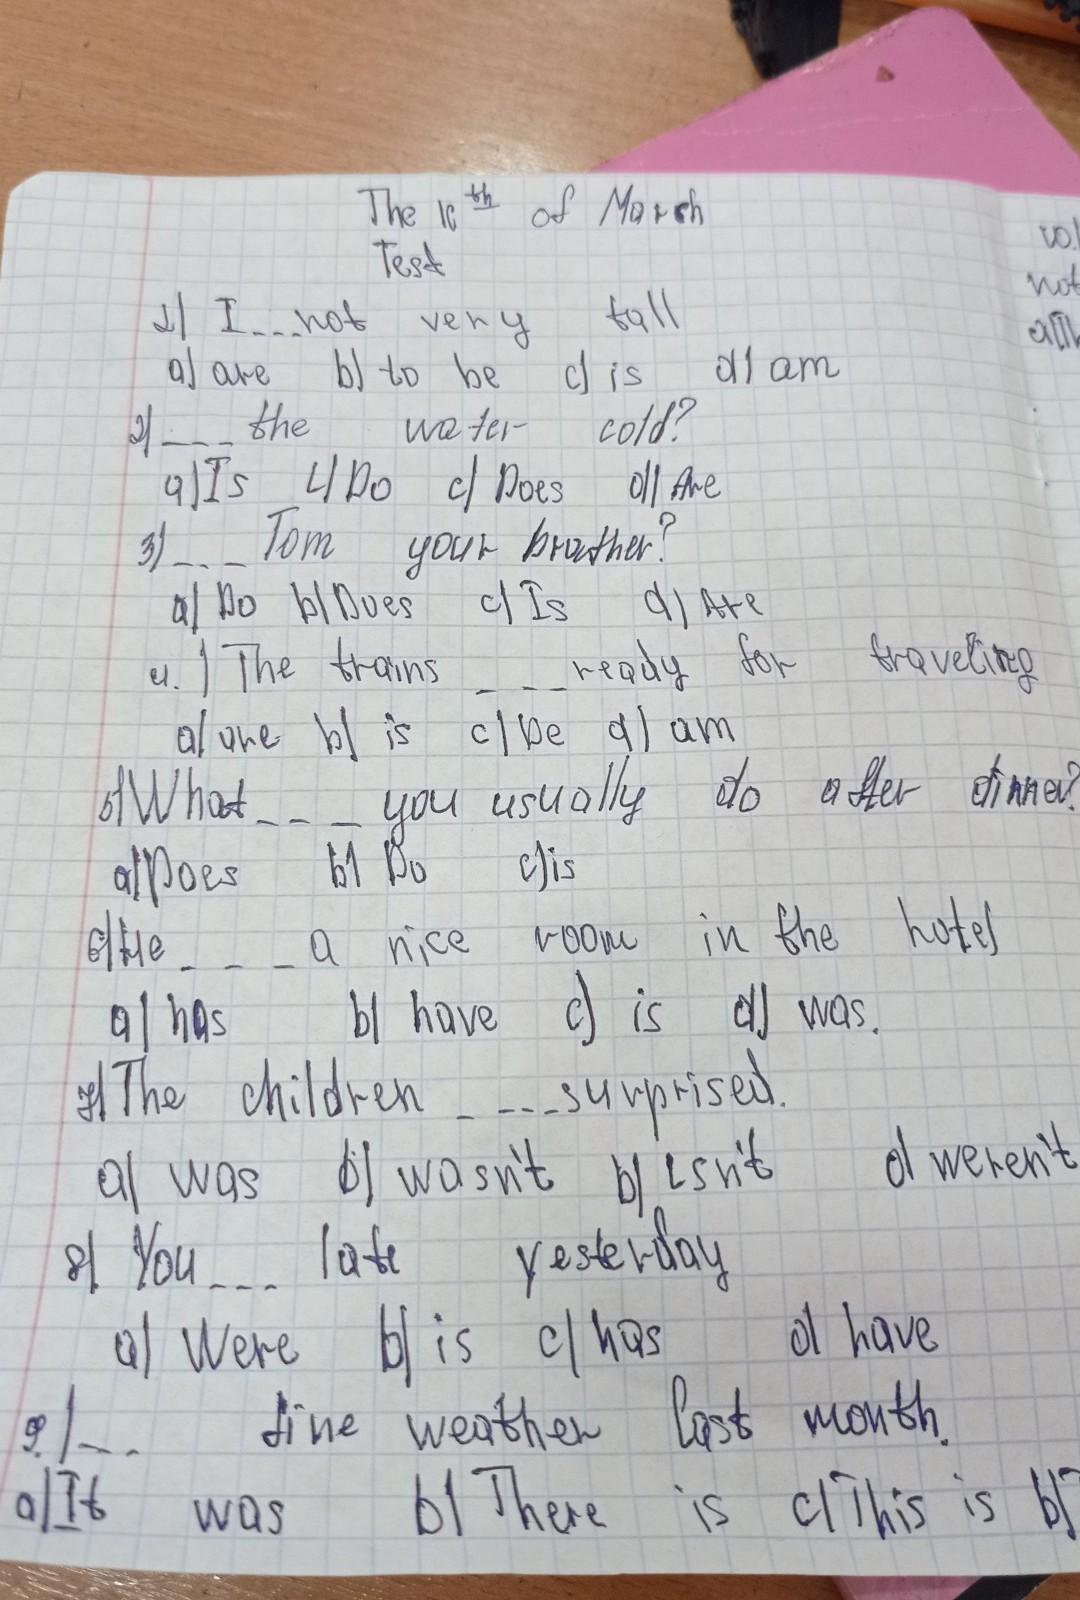 The 10th of March
Test
1) I ... not very tall
a) are b) to be c) is d) am
2) ___ the water cold?
a) Is b) Do c) Does d) Are
3) ___ Tom your brother?
a) Do b) Does c) Is d) Are
4.) The trains ___ ready for traveling
a) are b) is c) be d) am
5) What ___ you usually do after dinner?
a) Does b) Do c) is
6) He ___ a nice room in the hotel
a) has b) have c) is d) was.
7) The children ____ surprised.
a) was b) wasn't b) isn't d) weren't
8) You ___ late yesterday
a) Were b) is c) has d) have
9.) ___ fine weather last month.
a) It was b) There is c) This is b)
not